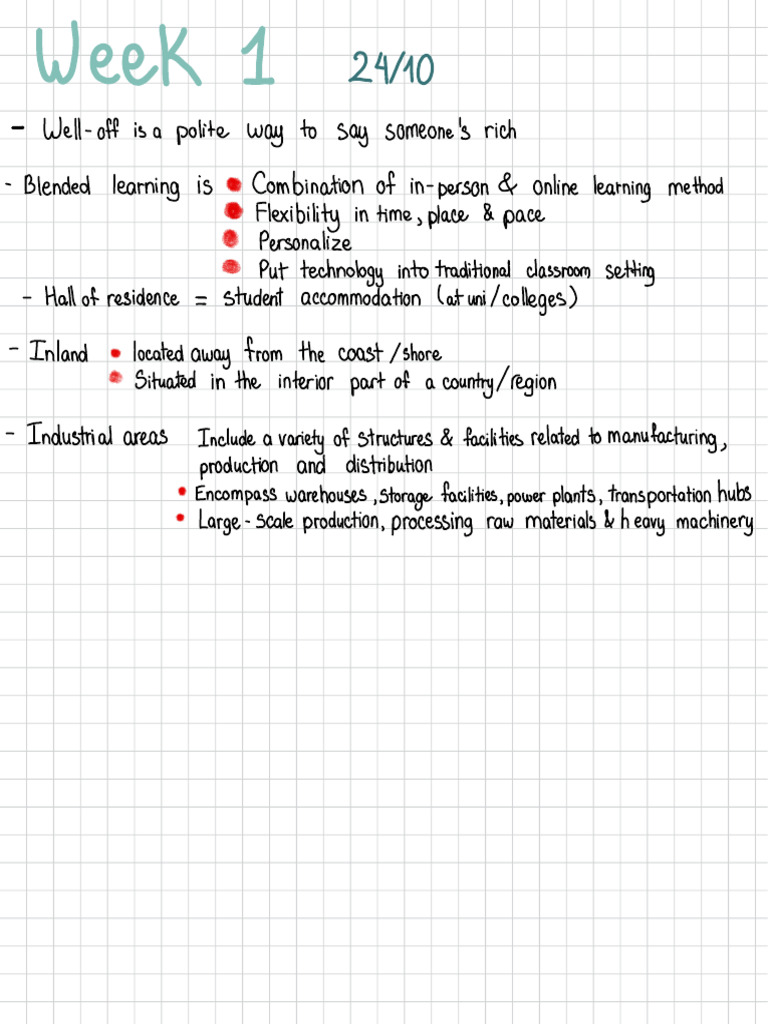 Week 1 24/10
- Well-off is a polite way to say someone's rich
- Blended learning is • Combination of in-person & online learning method
• Flexibility in time, place & pace
• Personalize
• Put technology into traditional classroom setting
- Hall of residence = student accommodation (at uni/colleges)
- Inland • located away from the coast/shore
• Situated in the interior part of a country/region
- Industrial areas Include a variety of structures & facilities related to manufacturing,
production and distribution
• Encompass warehouses, storage facilities, power plants, transportation hubs
• Large-scale production, processing raw materials & heavy machinery